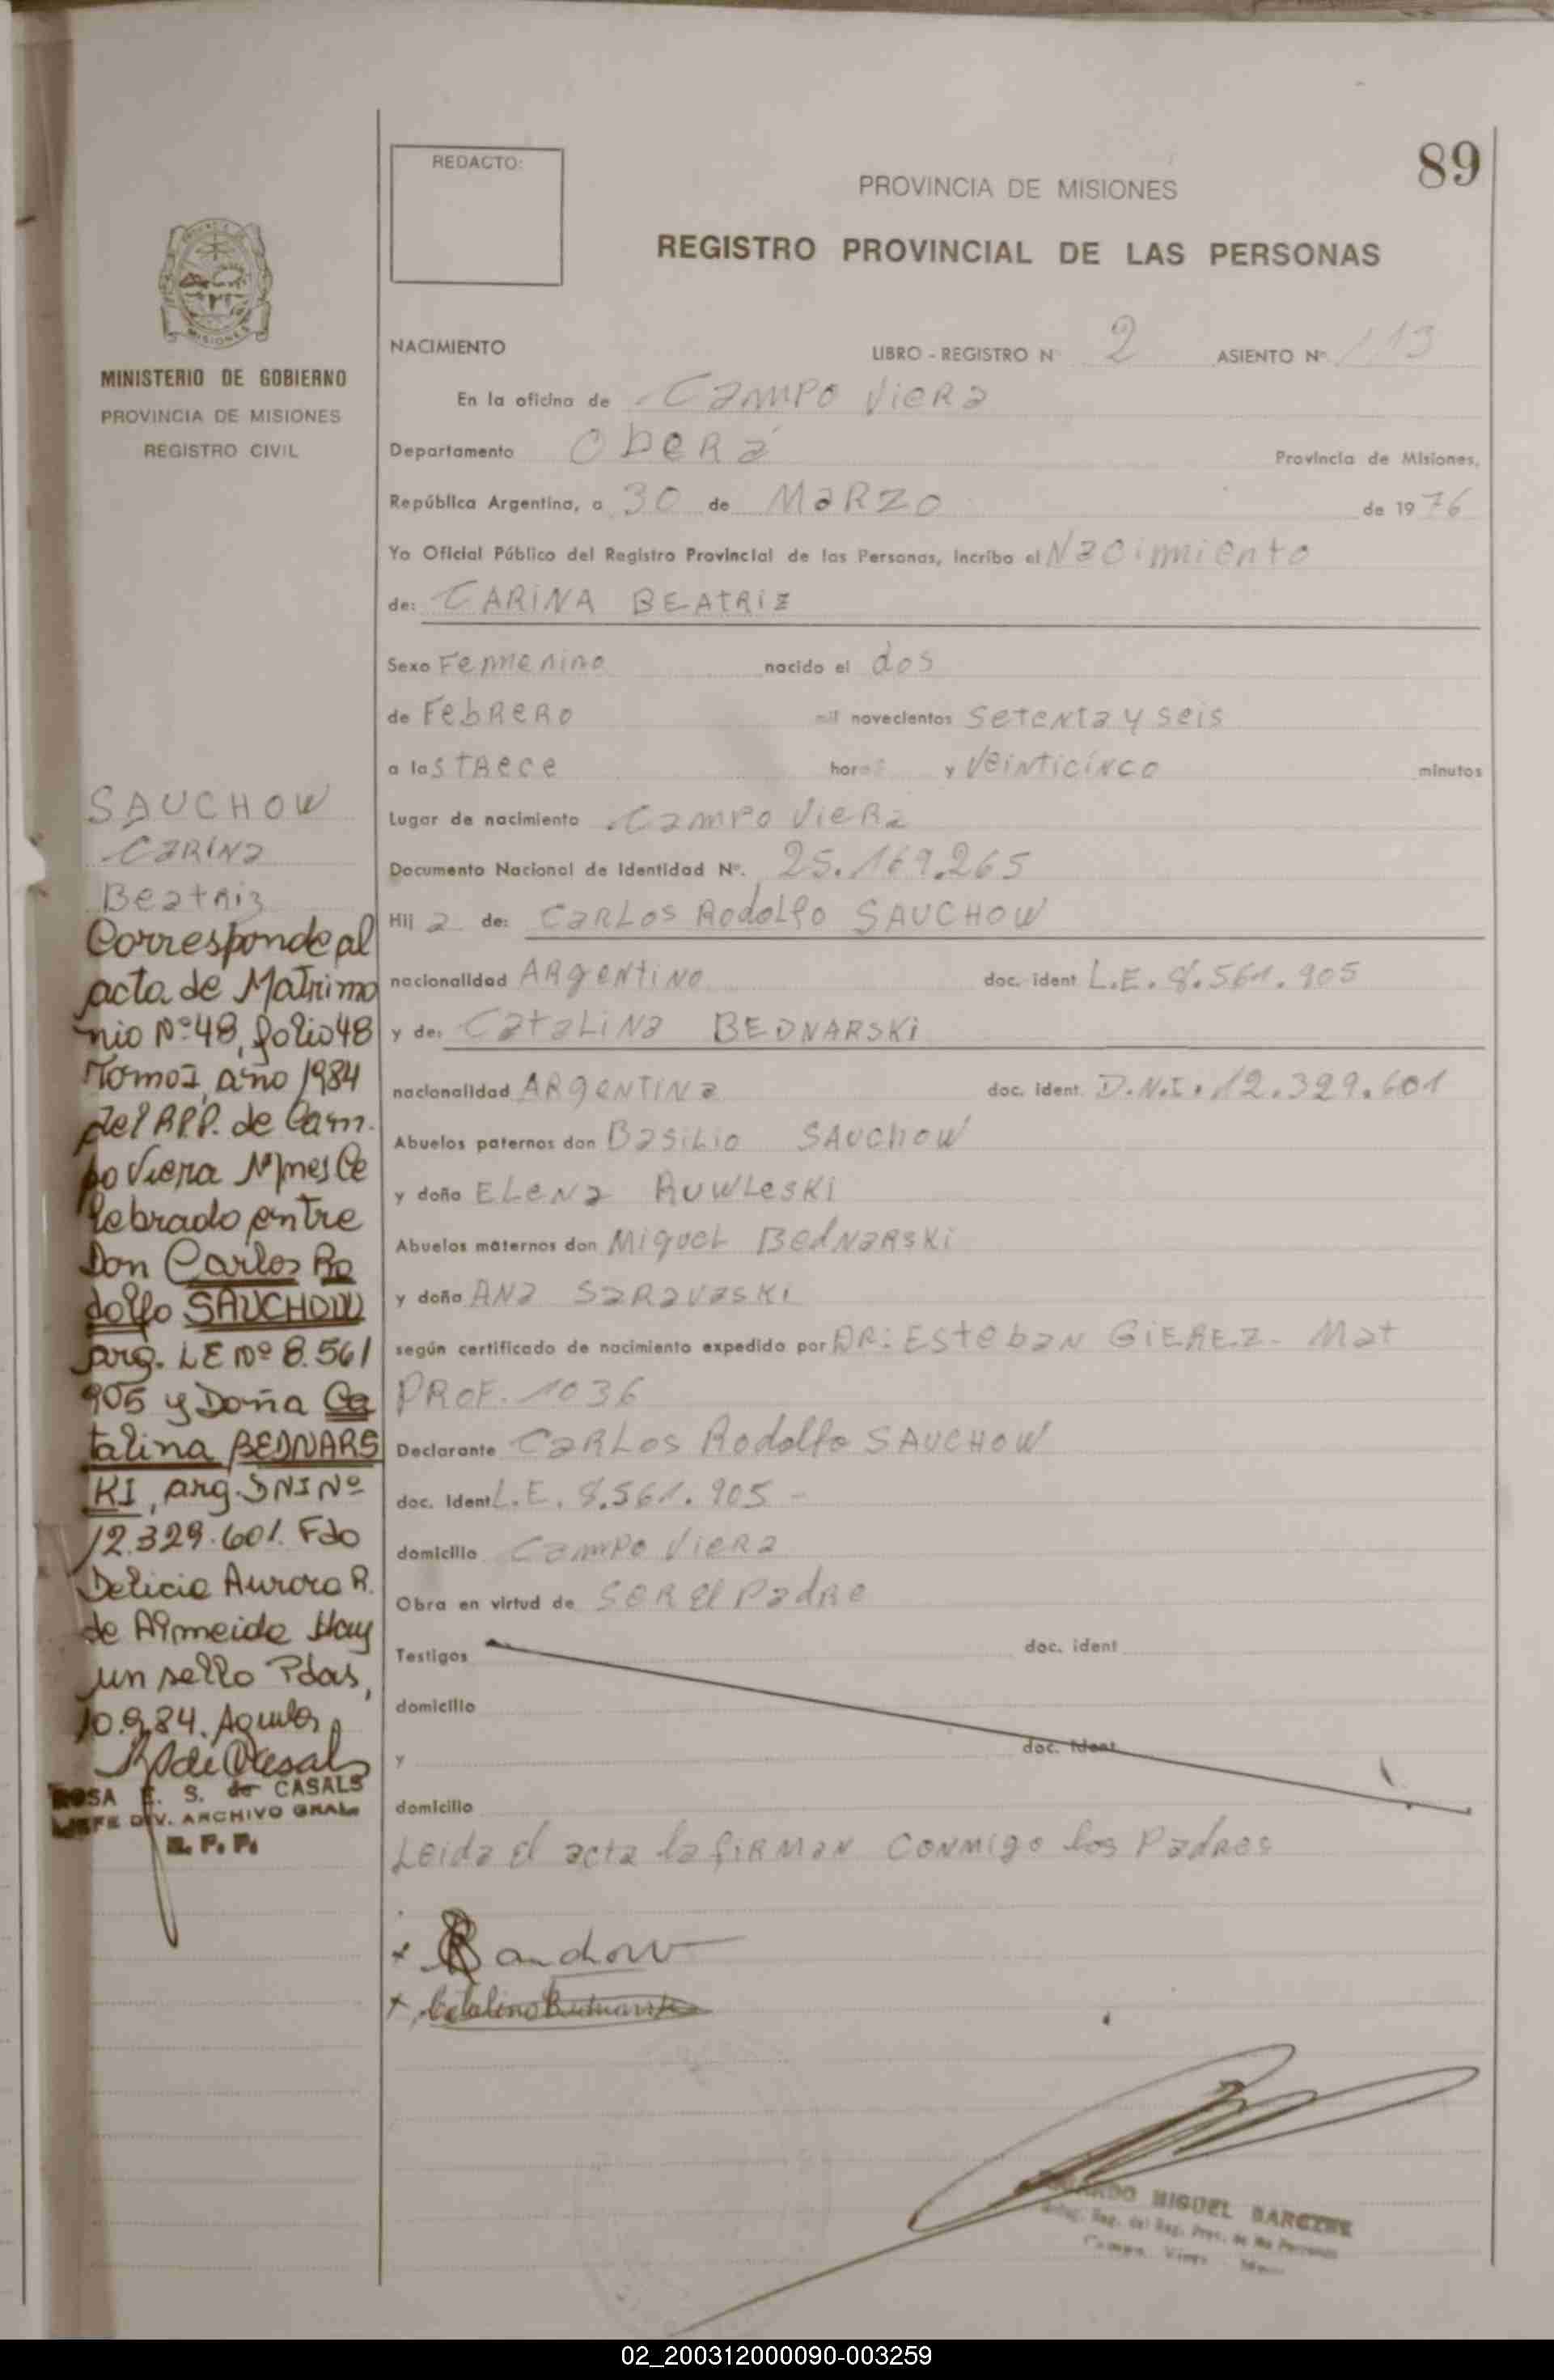 89
REDACTO:
PROVINCIA DE MISIONES
REGISTRO PROVINCIAL DE LAS PERSONAS
MISIONES
MINISTERIO DE GOBIERNO
PROVINCIA DE MISIONES
REGISTRO CIVIL
NACIMIENTO
LIBRO - REGISTRO N 2 ASIENTO Nº 113
En la oficina de Campo Viera
Departamento Oberá Provincia de Misiones,
República Argentina, a 30 de Marzo de 1976
Yo Oficial Público del Registro Provincial de las Personas, incribo el Nacimiento
de: CARINA BEATRIZ
Sexo Femenino nacido el dos
de Febrero mil novecientos Setenta y seis
a las Trece horas y Veinticinco minutos
Lugar de nacimiento Campo Viera
Documento Nacional de Identidad Nº. 25.169.265
Hij a de: Carlos Rodolfo SAUCHOW
nacionalidad Argentino doc. ident L.E. 8.561.905
y de: Catalina BEDNARSKI
nacionalidad ARGENTINA doc. ident. D.N.I. 12.329.601
Abuelos paternos don Basilio SAUCHOW
y doña Elena RUWLESKI
Abuelos maternos don Miguel BEDNARSKI
y doña ANA SARAVASKI
según certificado de nacimiento expedido por DR: Esteban GIEREZ- Mat
PROF. 1036
Declarante Carlos Rodolfo SAUCHOW
doc. Ident L.E. 8.561.905 -
domicilio Campo Viera
Obra en virtud de SER El Padre
Testigos doc. ident
domicilio
y doc. ident
domicilio
Leida el acta la firman conmigo los Padres
SAUCHOW
CARINA
Beatriz
Corresponde al
acta de Matrimo
nio Nº 48, folio 48
Tomo I, año 1984
del R.P.P. de Cam-
po Viera Mnes Ce
lebrado entre
Don Carlos Ro
dolfo SAUCHOW
arg. LE Nº 8.561
905 y Doña Ca
talina BEDNARS
KI, arg. DNI Nº
12.329.601. Fdo
Delicia Aurora R.
de Almeida Hay
un sello Pdas,
10.9.84.
ROSA E. S. de CASALS
JEFE DIV. ARCHIVO GRAL.
R. P. P.
Sauchow
Catalina Bednarski
MIGUEL
02_200312000090-003259